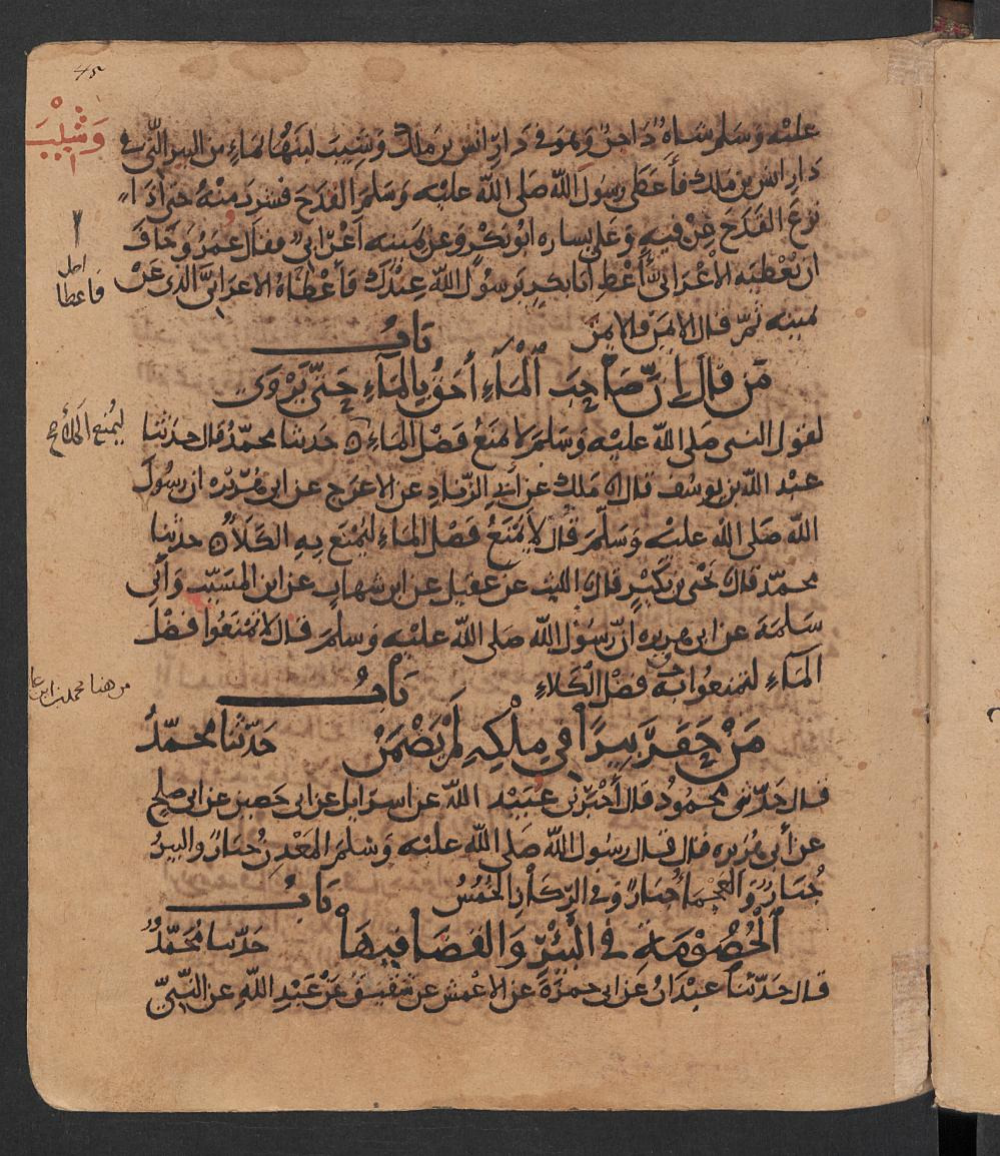 45
عليه وسلم شاة داجن وهو في دار انس بن ملك وشيب لبنها بماء من البير التي في
وشيب
دار انس بن ملك فأعطى رسول الله صلى الله عليه وسلم القدح فشرب منه حتى اذا
نزع القدح عن فيه وعلى يساره ابو بكر وعن يمينه اعرابي فقال عمر وخاف
ان يعطيه الاعرابي أعط أبا بكر يرسول الله عندك فأعطاه الاعرابي الذي عن
اصل
فاعطا
يمينه ثم قال الايمن فالايمن باب
من قال إن صاحب الماء أحق بالماء حتى يروى
لقول النبي صلى الله عليه وسلم لا يمنع فضل الماء حدثنا محمد قال حدثنا
ليمنع
عبد الله بن يوسف قال ملك عن أبي الزناد عن الاعرج عن ابي هريره ان رسول
الله صلى الله عليه وسلم قال لا يمنع فضل الماء ليمنع به الكلأ حدثنا
محمد قال يحيى بن بكير قال الليث عن عقيل عن ابن شهاب عن ابن المسيب وأبي
سلمة عن ابي هريره ان رسول الله صلى الله عليه وسلم قال لا تمنعوا فضل
الماء لتمنعوا به فضل الكلاء باب
من هنا
من حفر بيرا في ملكه لم يضمن حدثنا محمد
قال حدثني محمود قال أخبرني عبيد الله عن اسرايل عن ابي حصين عن ابي صلح
عن أبي هريره قال قال رسول الله صلى الله عليه وسلم المعدن جبار والبير
جبار والعجما جبار وفي الركاز الخمس باب
الخصومة في البئر والقضا فيها حدثنا محمد
قال حدثنا عبدان عن ابي حمزة عن الاعمش عن شقيق عن عبد الله عن النبي